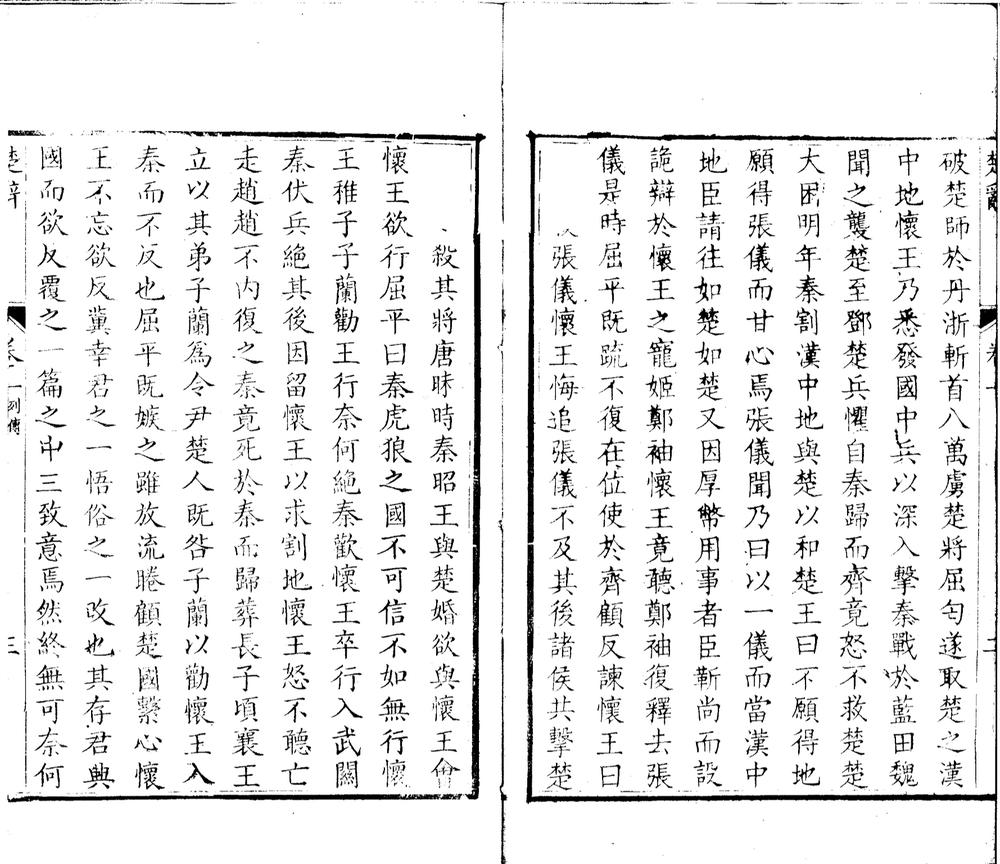 楚辭
卷一
二
破楚師於丹淅斬首八萬虜楚將屈匄遂取楚之漢
中地懷王乃悉發國中兵以深入擊秦戰於藍田魏
聞之襲楚至鄧楚兵懼自秦歸而齊竟怒不救楚楚
大困明年秦割漢中地與楚以和楚王曰不願得地
願得張儀而甘心焉張儀聞乃曰以一儀而當漢中
地臣請往如楚如楚又因厚幣用事者臣靳尚而設
詭辯於懷王之寵姬鄭袖懷王竟聽鄭袖復釋去張
儀是時屈平既疏不復在位使於齊顧反諫懷王曰
張儀懷王悔追張儀不及其後諸侯共擊楚
殺其將唐昧時秦昭王與楚婚欲與懷王會
懷王欲行屈平曰秦虎狼之國不可信不如無行懷
王稚子子蘭勸王行奈何絕秦歡懷王卒行入武關
秦伏兵絕其後因留懷王以求割地懷王怒不聽亡
走趙趙不內復之秦竟死於秦而歸葬長子頃襄王
立以其弟子蘭為令尹楚人既咎子蘭以勸懷王入
秦而不反也屈平既嫉之雖放流睠顧楚國繫心懷
王不忘欲反冀幸君之一悟俗之一改也其存君興
國而欲反覆之一篇之中三致意焉然終無可奈何
楚辭
卷一列傳
三